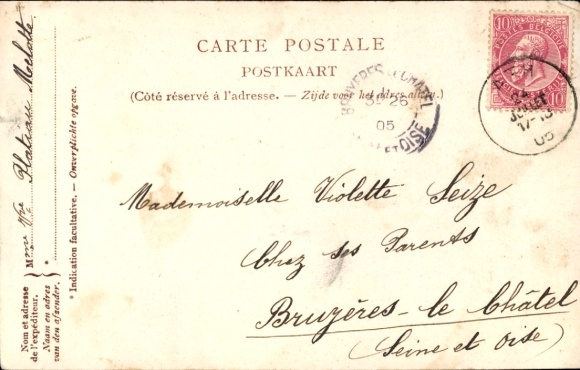 CARTE POSTALE
POSTKAART
(Côté réservé à l'adresse. — Zijde voor het adres alleen.)
10 10
POSTES BELGIQUE
10 10
JUILLET
17-18
05
BRUYERES LE CHATEL
26
05
ET OISE
Mademoiselle Violette Seize
Chez ses Parents
Bruyères-le Châtel
(Seine et Oise)
Mme Vve Plateau Mechotte
* Indication facultative. — Onverplichte opgave.
Nom et adresse
de l'expéditeur.
Naam en adres
van den afzender.
*